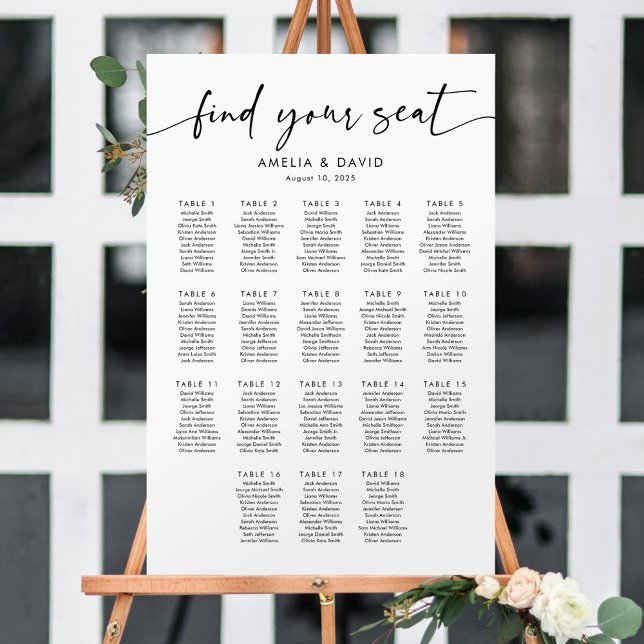 find your seat
AMELIA & DAVID
August 10, 2025
TABLE 1
Michelle Smith
Jeorge Smith
Olivia Kate Smith
Kristen Anderson
Oliver Anderson
Jack Anderson
Sarah Anderson
Liana Williams
Seth Williams
David Williams
TABLE 2
Jack Anderson
Sarah Anderson
Liana Jessica Williams
Sebastian Williams
David Williams
Michelle Smith
Jeorge Smith Jr.
Jennifer Smith
Kristen Anderson
Oliver Anderson
TABLE 3
David Williams
Michelle Smith
Jeorge Smith
Olivia Maria Smith
Jennifer Anderson
Sarah Anderson
Liana Williams
Sam Michael Williams
Kristen Anderson
Oliver Anderson
TABLE 4
Jack Anderson
Sarah Anderson
Liana Williams
Sebastian Williams
Kristen Anderson
Oliver Anderson
Michelle Smith
Jeorge Daniel Smith
Olivia Kate Smith
TABLE 5
Jack Anderson
Sarah Anderson
Liana Williams
Alexander Williams
Kristen Anderson
Oliver Jason Anderson
David Mitchel Williams
Jeorge Smith
Olivia Nicole Smith
TABLE 6
Sarah Anderson
Liana Williams
Jennifer Williams
David Williams
Kristen Anderson
Oliver Anderson
Michelle Smith
Jeorge Jefferson
Olivia Jefferson
Anna Luisa Smith
Jack Anderson
TABLE 7
Liana Williams
Dannis Williams
David Williams
Kristen Anderson
Oliver Anderson
Michelle Smith
Jeorge Smith
Olivia Smith
Jack Anderson
Sarah Anderson
TABLE 8
Sarah Anderson
Liana Williams
Alexander Jefferson
David Jason Williams
Michelle Smith
Jeorge Smith
Olivia Jefferson
Kristen Anderson
Oliver Anderson
TABLE 9
Michelle Smith
Jeorge Michael Smith
Olivia Nicole Smith
Kristen Anderson
Oliver Anderson
Jack Anderson
Sarah Anderson
Rebecca Williams
Seth Jefferson
Jennifer Williams
TABLE 10
Michelle Smith
Jeorge Smith
Olivia Jefferson
Oliver Anderson
Miranda Anderson
Sarah Anderson
Ann Nicole Williams
Dorian Williams
David Williams
TABLE 11
David Williams
Michelle Smith
Jeorge Smith
Olivia Jefferson
Jack Anderson
Sarah Anderson
Lana Ann Williams
Maksimilian Williams
Kristen Anderson
Oliver Anderson
TABLE 12
Jack Anderson
Sarah Anderson
Liana Williams
Sebastian Williams
Kristen Anderson
Oliver Anderson
Michelle Smith
Jeorge Daniel Smith
Olivia Kate Smith
TABLE 13
Jack Anderson
Sarah Anderson
Lia Jessica Williams
Sebastian Williams
David Jefferson
Michelle Ann Smith
Jeorge Smith Jr.
Jennifer Smith
Kristen Anderson
Oliver Anderson
TABLE 14
Jack Anderson
Sarah Smith
Liana Williams
Alexander Jefferson
David Jefferson
Michelle Smithson
Jeorge Smithson
Olivia Smith
Kristen Anderson
Oliver Anderson
TABLE 15
David Williams
Michelle Smith
Jeorge Smith
Olivia Maria Smith
Jack Anderson
Sarah Anderson
Liana Williams
Michael Williams Jr.
Kristen Anderson
Oliver Anderson
TABLE 16
Michelle Smith
Jeorge Michael Smith
Olivia Nicole Smith
Kristen Anderson
Oliver Anderson
Jack Anderson
Sarah Anderson
Rebecca Williams
Seth Jefferson
Jennifer Williams
TABLE 17
Jack Anderson
Sarah Anderson
Liana Williams
Sebastian Williams
Kristen Anderson
Oliver Anderson
Alexander Williams
Michelle Smith
Jeorge Daniel Smith
Olivia Kate Smith
TABLE 18
David Williams
Michelle Smith
Jeorge Smith
Olivia Maria Smith
Jack Anderson
Sarah Anderson
Liana Williams
Sam Michael Williams
Kristen Anderson
Oliver Anderson